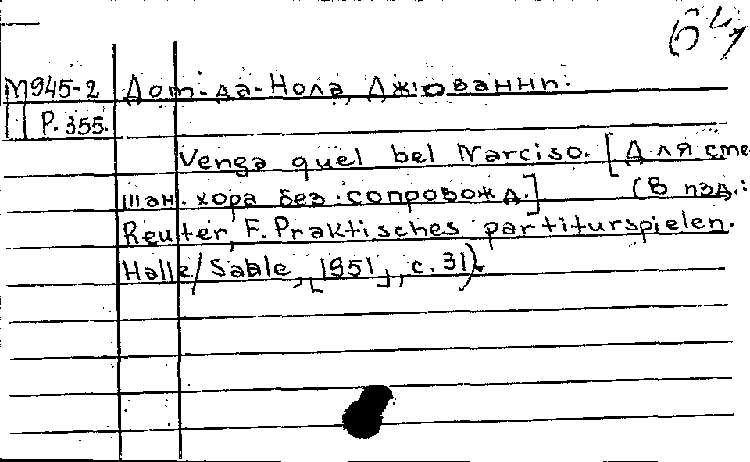 64
М945-2 Дом-да-Нола, Джованни.
Р.355.
Venga quel bel Narciso. [Для сме
шан. хора без сопровожд.] (В изд.:
Reuter, F. Praktisches partiturspielen.
Halle/Saale, [1951], с.31).